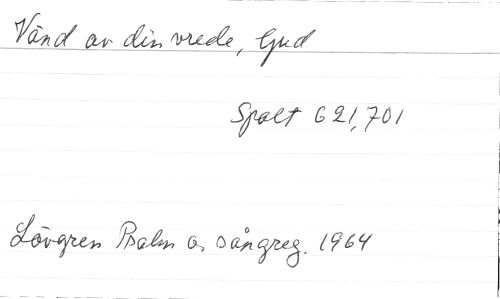 Vänd av din vrede, Gud
Spalt 621,701
Lövgren Psalm o. sångreg. 1964